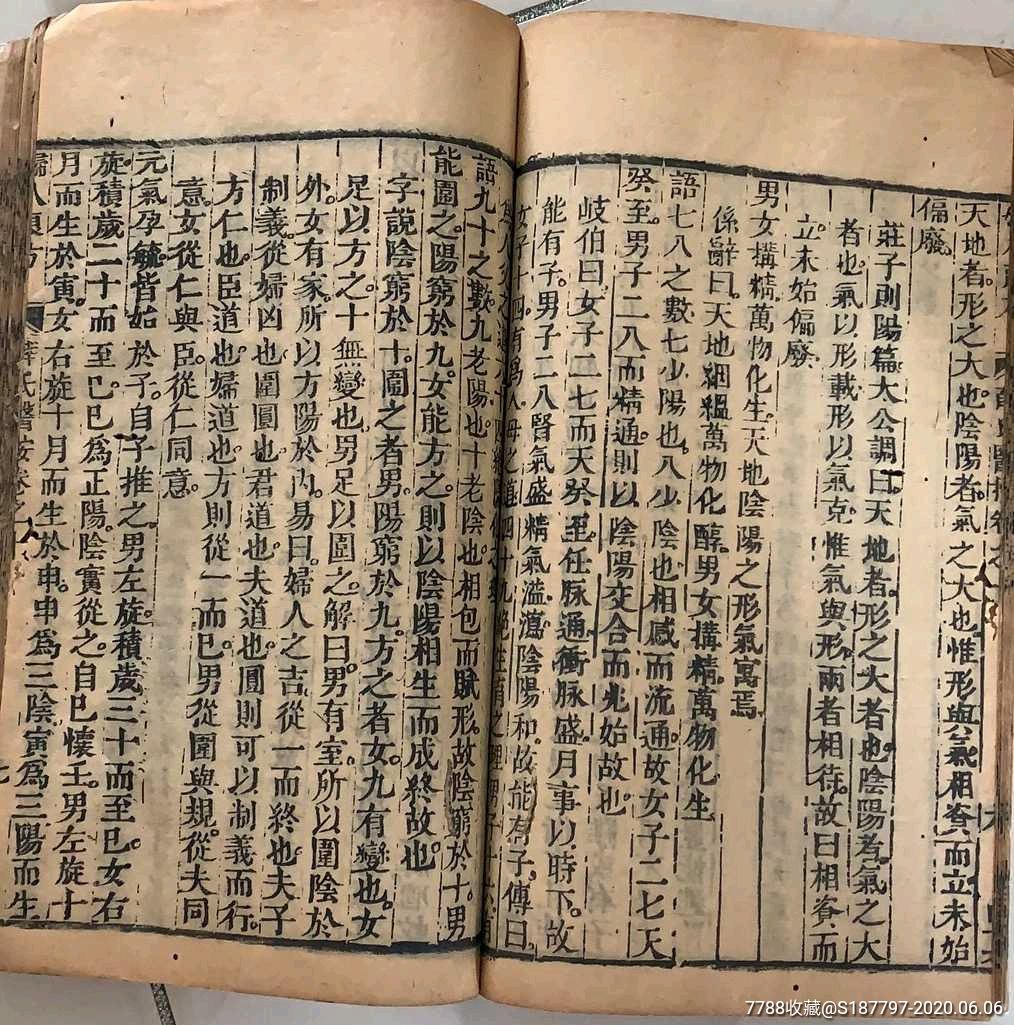 天地者形之大也陰陽者氣之大也惟形與氣相資而立未始
偏廢
莊子則陽篇大公調曰天地者形之大者也陰陽者氣之大
者也氣以形載形以氣充惟氣與形兩者相待故曰相資而
立未始偏廢
男女搆精萬物化生天地陰陽之形氣寓焉
係辭曰天地絪縕萬物化醇男女搆精萬物化生
語七八之數七少陽也八少陰也相感而流通故女子二七天
癸至男子二八而精通則以陰陽交合而兆始故也
岐伯曰女子二七而天癸至任脉通衝脉盛月事以時下故
能有子男子二八腎氣盛精氣溢瀉陰陽和故能有子傳曰
語九十之數九老陽也十老陰也相包而賦形故陰窮於十男
能圍之陽窮於九女能方之則以陰陽相生而成終故也
字說陰窮於十圍之者男陽窮於九方之者女九有變也女
足以方之十無變也男足以圍之解曰男有室所以圍陰於
外女有家所以方陽於內易曰婦人之吉從一而終也夫子
制義從婦凶也圍圓也君道也夫道也圓則可以制義而行
方仁也臣道也婦道也方則從一而已男從圍與規從夫同
意女從仁與臣從仁同意
元氣孕毓皆始於子自子推之男左旋積歲三十而至巳女右
旋積歲二十而至巳巳為正陽陰實從之自巳懷壬男左旋十
月而生於寅女右旋十月而生於申申為三陰寅為三陽而生
薛氏醫按卷之
7788收藏@S187797-2020.06.06